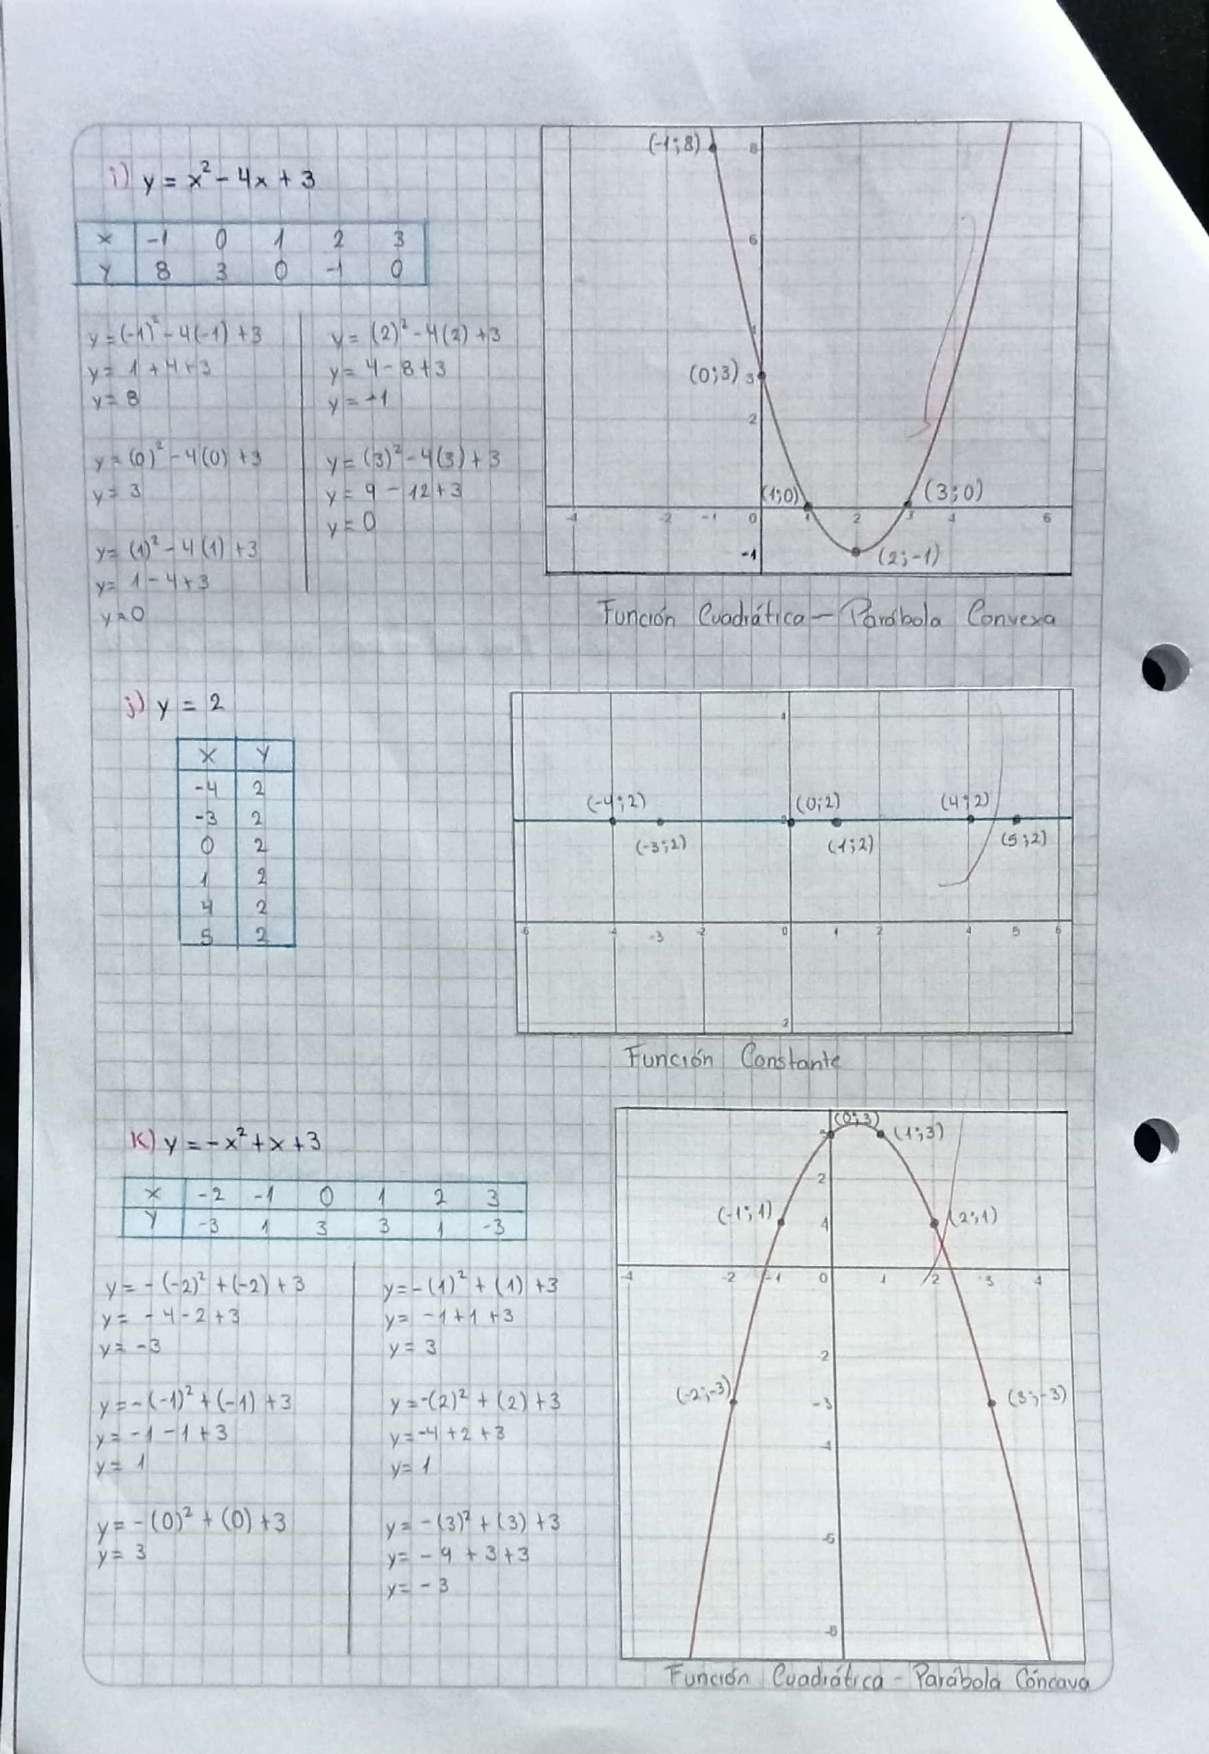 i) y = x² - 4x + 3
x -1 0 1 2 3
y 8 3 0 -1 0
y = (-1)² - 4(-1) + 3
y = 1 + 4 + 3
y = 8
y = (0)² - 4(0) + 3
y = 3
y = (1)² - 4(1) + 3
y = 1 - 4 + 3
y = 0
y = (2)² - 4(2) + 3
y = 4 - 8 + 3
y = -1
y = (3)² - 4(3) + 3
y = 9 - 12 + 3
y = 0
(-1;8) 8
6
4
(0;3) 3
2
(1;0) (3;0)
-4 -2 -1 0 1 2 3 4 6
-1 (2;-1)
Función Cuadrática - Parábola Convexa
j) y = 2
x y
-4 2
-3 2
0 2
1 2
4 2
5 2
4
(-4;2) (0;2) (4;2)
2
(-3;2) (1;2) (5;2)
-6 -4 -3 -2 0 1 2 4 5 6
2
Función Constante
K) y = -x² + x + 3
x -2 -1 0 1 2 3
y -3 1 3 3 1 -3
y = -(-2)² + (-2) + 3
y = -4 - 2 + 3
y = -3
y = -(-1)² + (-1) + 3
y = -1 - 1 + 3
y = 1
y = -(0)² + (0) + 3
y = 3
y = -(1)² + (1) + 3
y = -1 + 1 + 3
y = 3
y = -(2)² + (2) + 3
y = -4 + 2 + 3
y = 1
y = -(3)² + (3) + 3
y = -9 + 3 + 3
y = -3
(0;3)
3 (1;3)
2
(-1;1) 1 (2;1)
-4 -2 -1 0 1 2 3 4
-2
(-2;-3) -3 (3;-3)
-4
-6
-8
Función Cuadrática - Parábola Cóncava